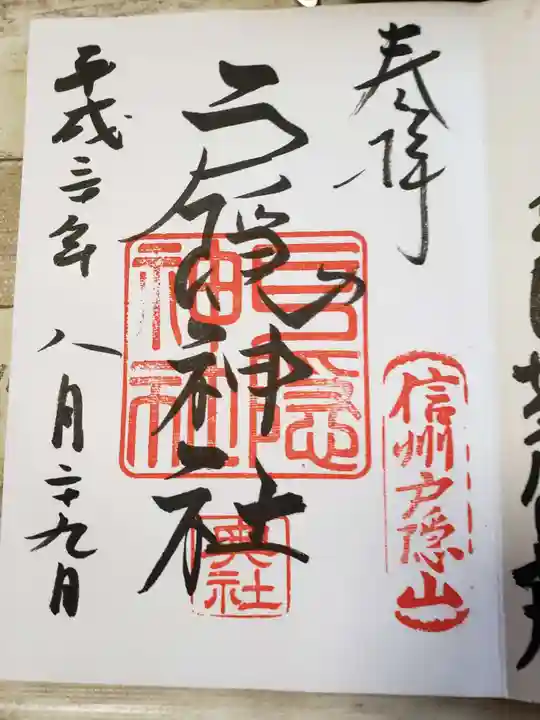 奉拝
信州戸隠山
戸隠神社
戸隠
神社
奥社
平成三十年
八月二十九日